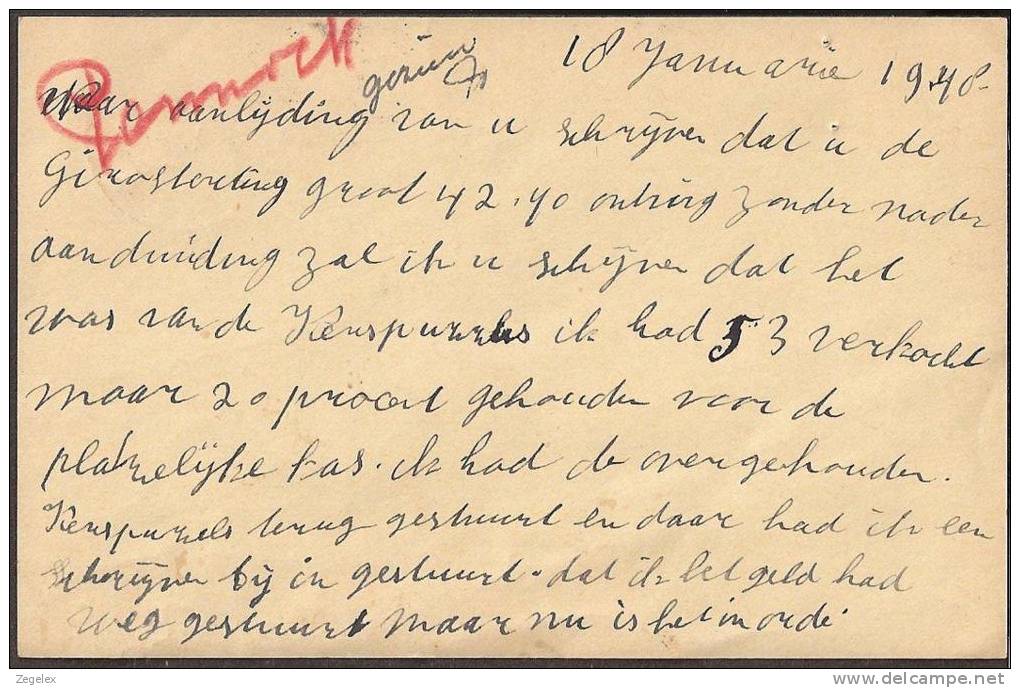 18 Januarie 1948-
Naar aanlijding van u schrijven dat u de
Girostorting groot 42,40 ontving zonder nader
aanduiding zal ik u schijven dat het
was van de Kerspuzzels ik had 53 verkocht
maar 20 procent gehouden voor de
plaatzelijke kas. ik had de overgehouden.
Kerspuzels terug gestuurt en daar had ik een
schrijven bij in gestuurt. dat ik het geld had
weg gestuurt maar nu is het in orde
Zegelex
www.delcampe.net